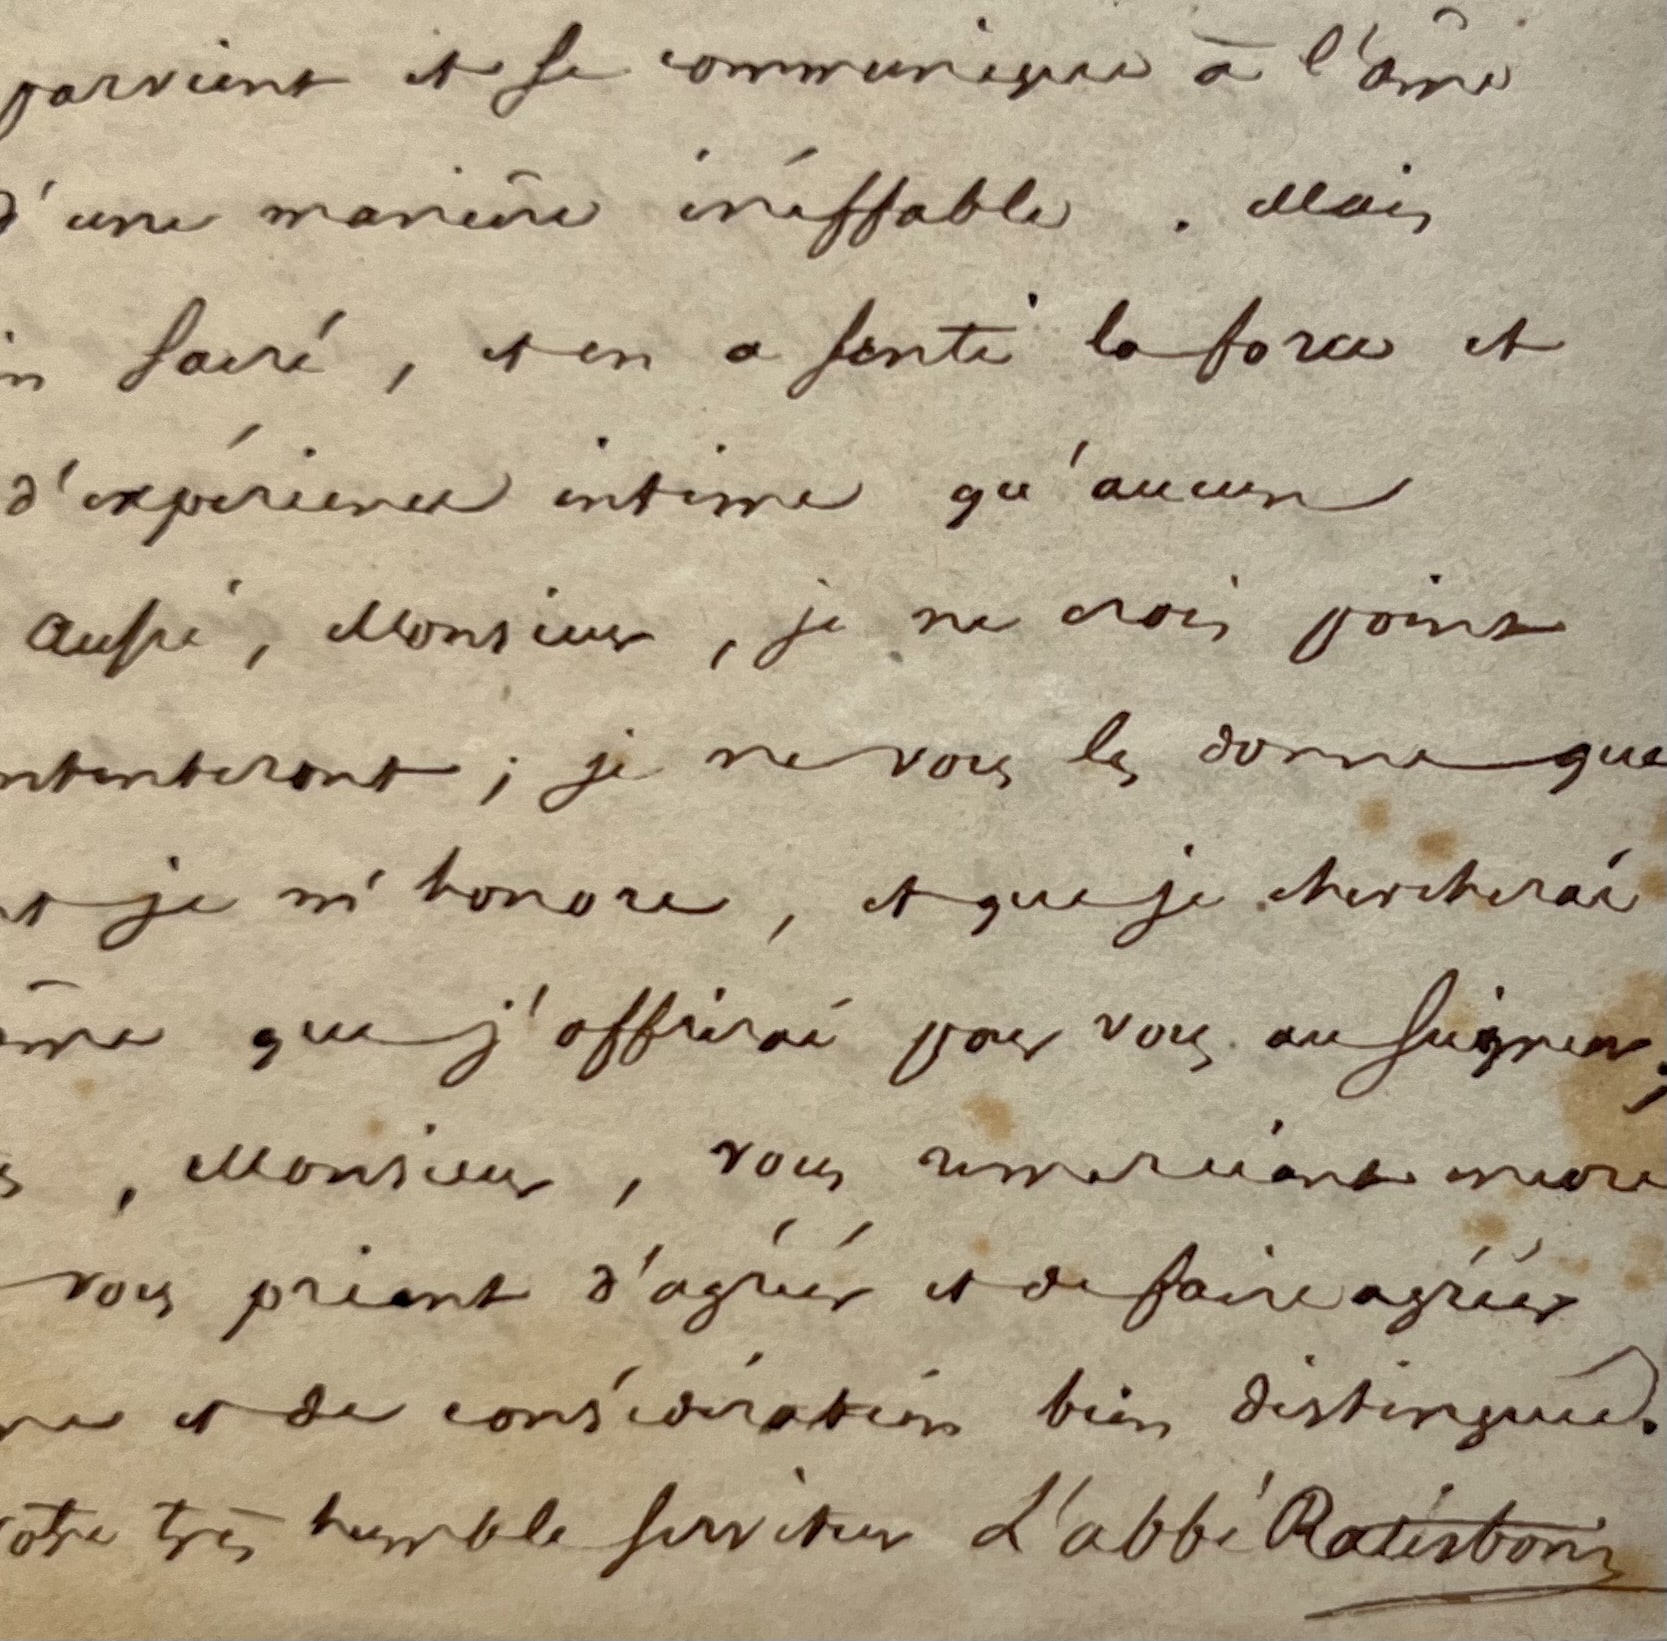 parvient et se communique à l'âme
d'une manière inéffable. Mais
in sacré, et en a senti la force et
d'expérience intime qu'aucun
Aussi, Monsieur, je ne crois point
ntenteront; je ne vous les donne que
et je m'honore, et que je chercherai
ême que j'offrirai pour vous au Seigneur;
s, Monsieur, vous remerciant encore
vous priant d'agréer et de faire agréer
me et de considération bien distinguée.
votre très humble serviteur L'abbé Ratisbonne